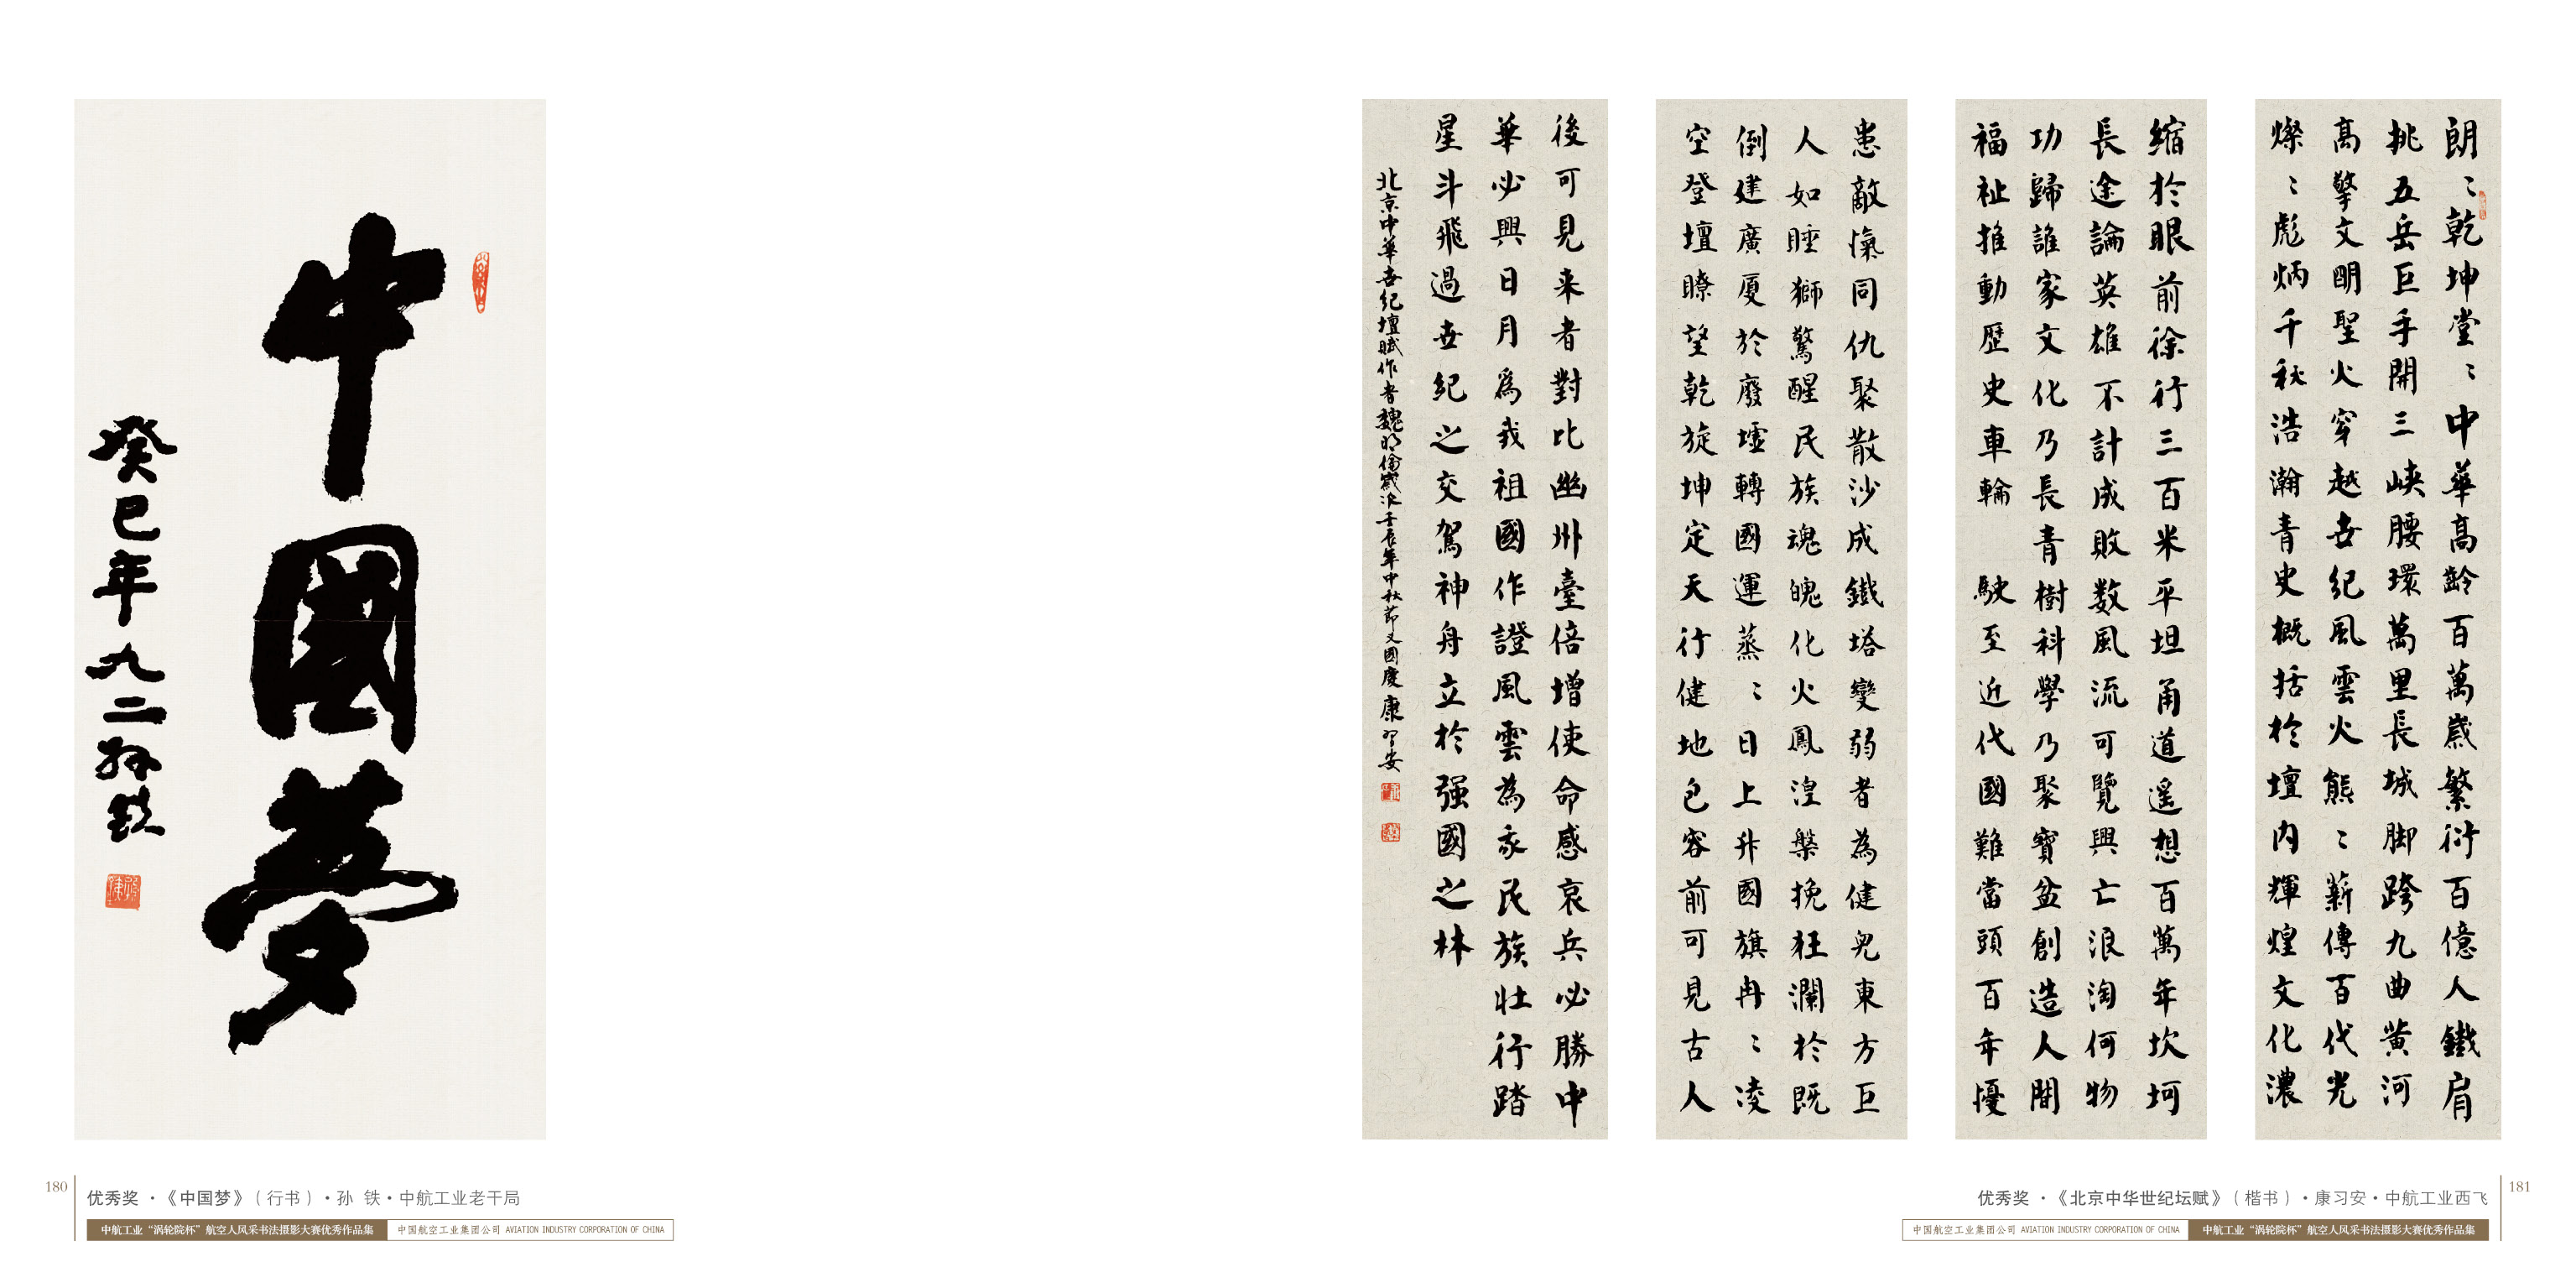 中國夢
癸巳年九二孙鐵
180
优秀奖 ·《中国梦》（行书）·孙 铁·中航工业老干局
中航工业“涡轮院杯”航空人风采书法摄影大赛优秀作品集
中国航空工业集团公司 AVIATION INDUSTRY CORPORATION OF CHINA
朗〻乾坤堂〻中華高齡百萬歲繁衍百億人鐵肩
挑五岳巨手開三峽腰環萬里長城脚跨九曲黄河
高擎文明聖火穿越世紀風雲火熊〻薪傳百代光
燦〻彪炳千秋浩瀚青史概括於壇内輝煌文化濃
缩於眼前徐行三百米平坦甬道遥想百萬年坎坷
長途論英雄不計成敗数風流可覽興亡浪淘何物
功歸誰家文化乃長青樹科學乃聚寶盆創造人間
福祉推動歷史車輪 駛至近代國難當頭百年憂
患敵愾同仇聚散沙成鐵塔變弱者為健兒東方巨
人如睡獅驚醒民族魂魄化火鳳湟槃挽狂瀾於既
倒建廣厦於廢墟轉國運蒸〻日上升國旗冉〻凌
空登壇瞭望乾旋坤定天行健地包容前可見古人
後可見来者對比幽州臺倍增使命感哀兵必勝中
華必興日月爲我祖國作證風雲為我民族壯行踏
星斗飛過世紀之交駕神舟立於强國之林
北京中華世紀壇賦作者魏明倫歲次壬辰年中秋節又國慶康習安
优秀奖 ·《北京中华世纪坛赋》（楷书）·康习安·中航工业西飞
181
中国航空工业集团公司 AVIATION INDUSTRY CORPORATION OF CHINA
中航工业“涡轮院杯”航空人风采书法摄影大赛优秀作品集